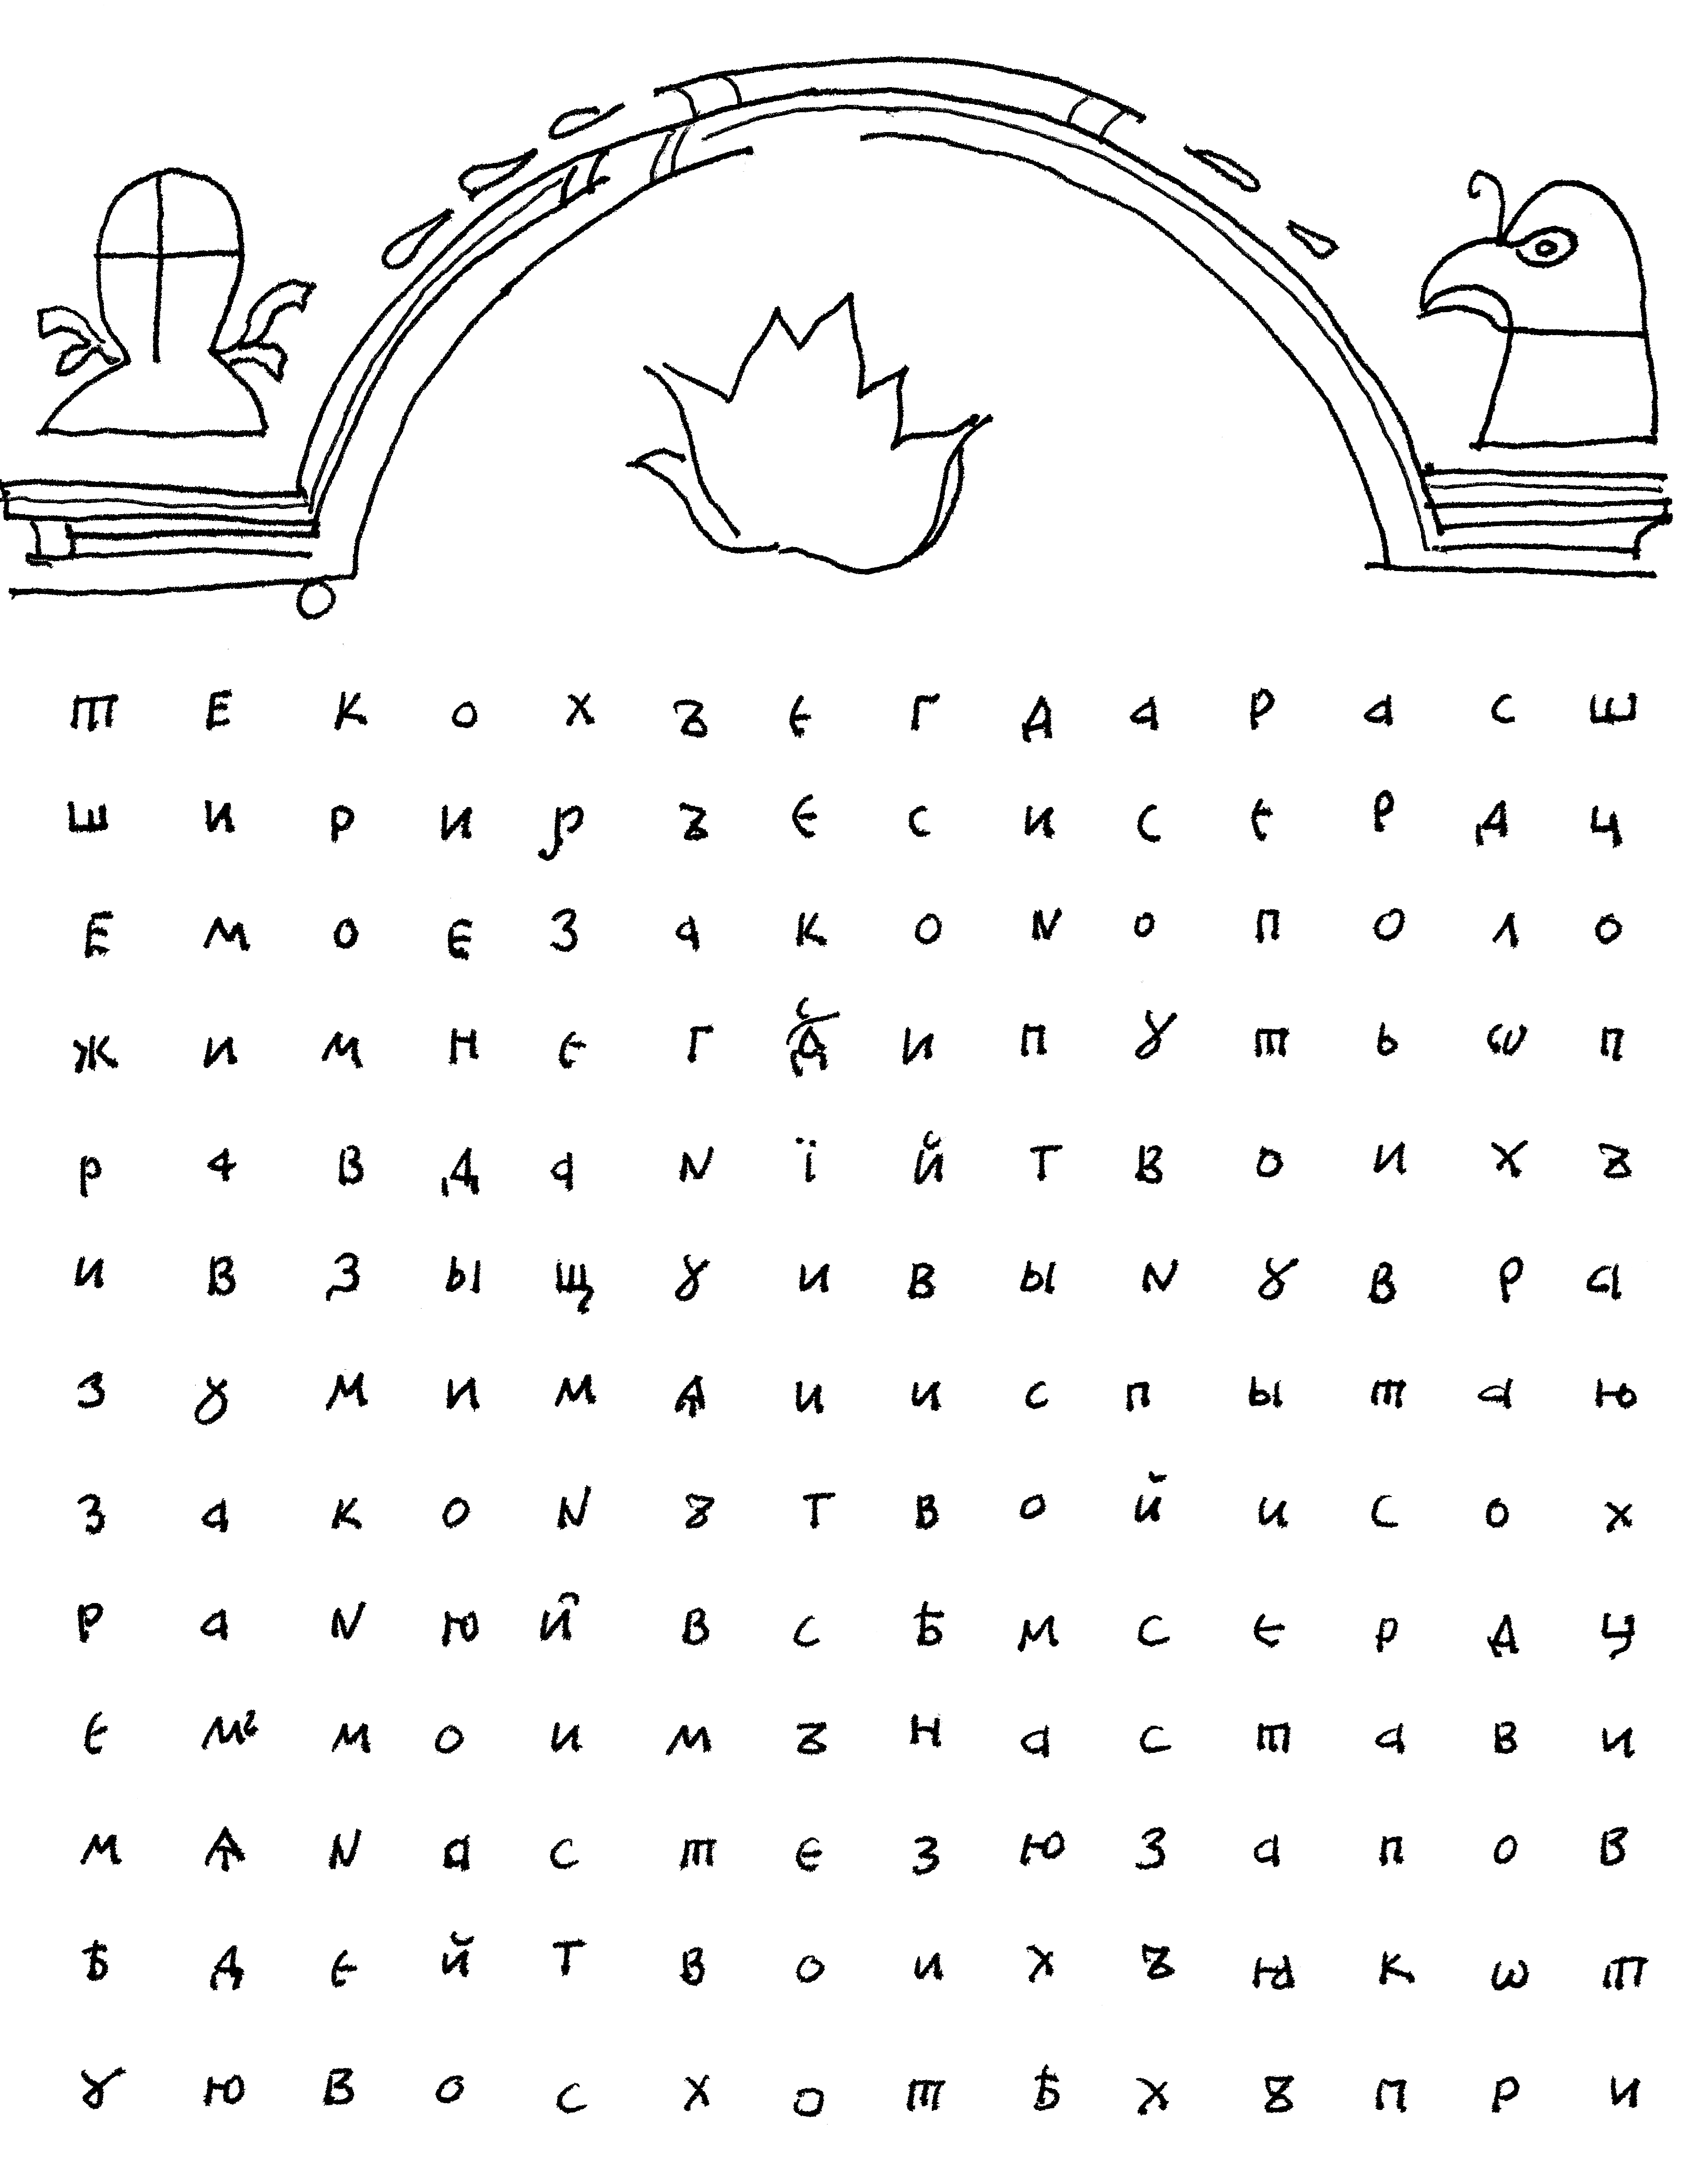 т е к о х ъ е г д а р а с ш
ш и р и р ъ е с и с е р д ц
е м о е з а к о н о п о л о
ж и м н е г҃ⷭ҇ д и п ꙋ т ь ѡ п
р а в д а н ї й т в о и х ъ
и в з ы щ ꙋ и в ы н ꙋ в р а
з ꙋ м и м ѧ и и с п ы т а ю
з а к о н ъ т в о й и с о х
р а н ю и҆ в с ѣ м с е р д ц
е м м о и м ъ н а с т а в и
м ѧ н а с т е з ю з а п о в
ѣ д е й т в о и х ъ ꙗ к ѡ т
ꙋ ю в о с х о т ѣ х ъ п р и